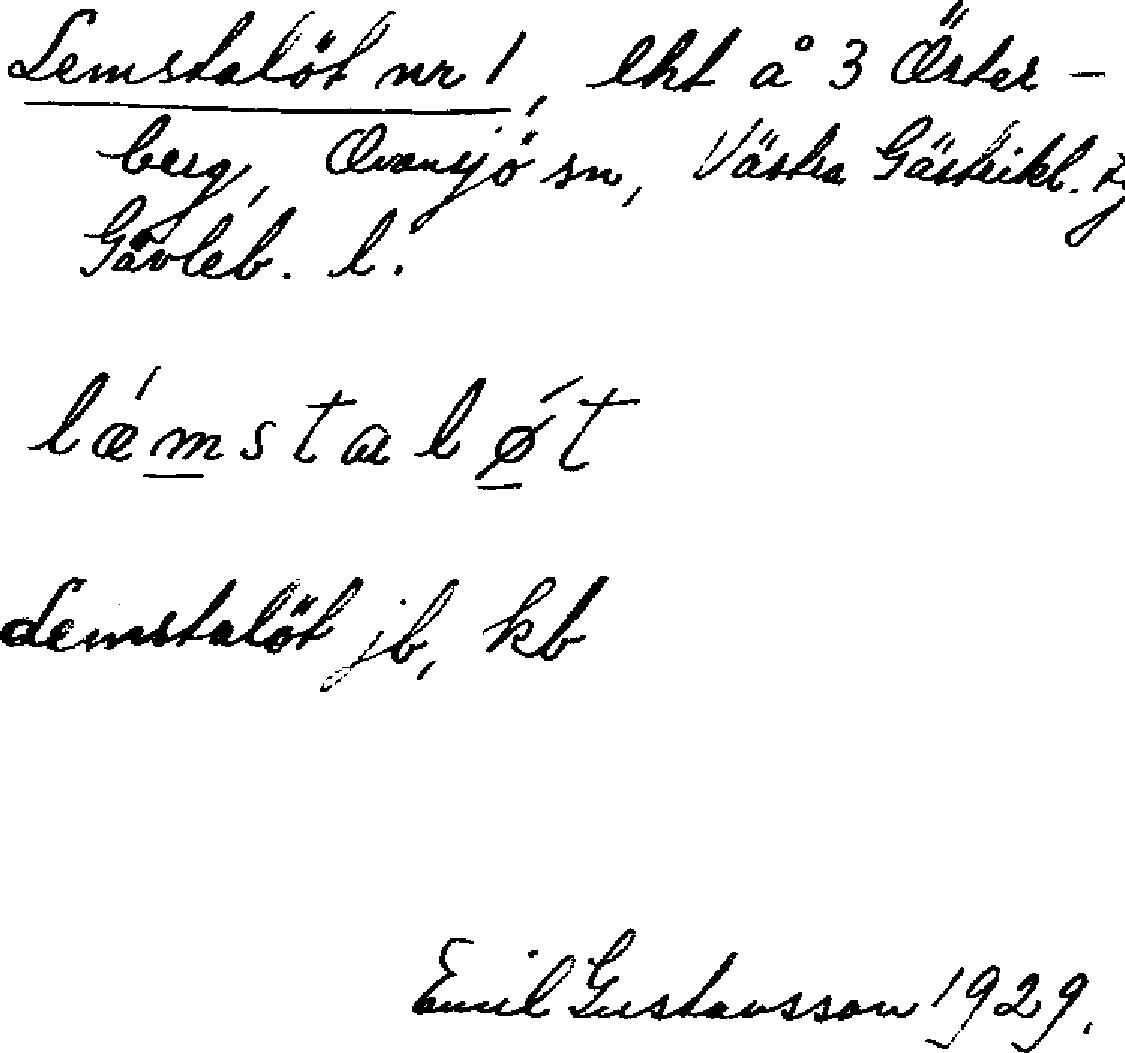 Lemstalöt nr 1, lht å 3 Öster-
berg, Ovansjö sn, Västra Gästrikl. tg
Gävleb. l.
lǽmstaløt́
Lemstalöt jb, kb
Emil Gustavsson 1929.